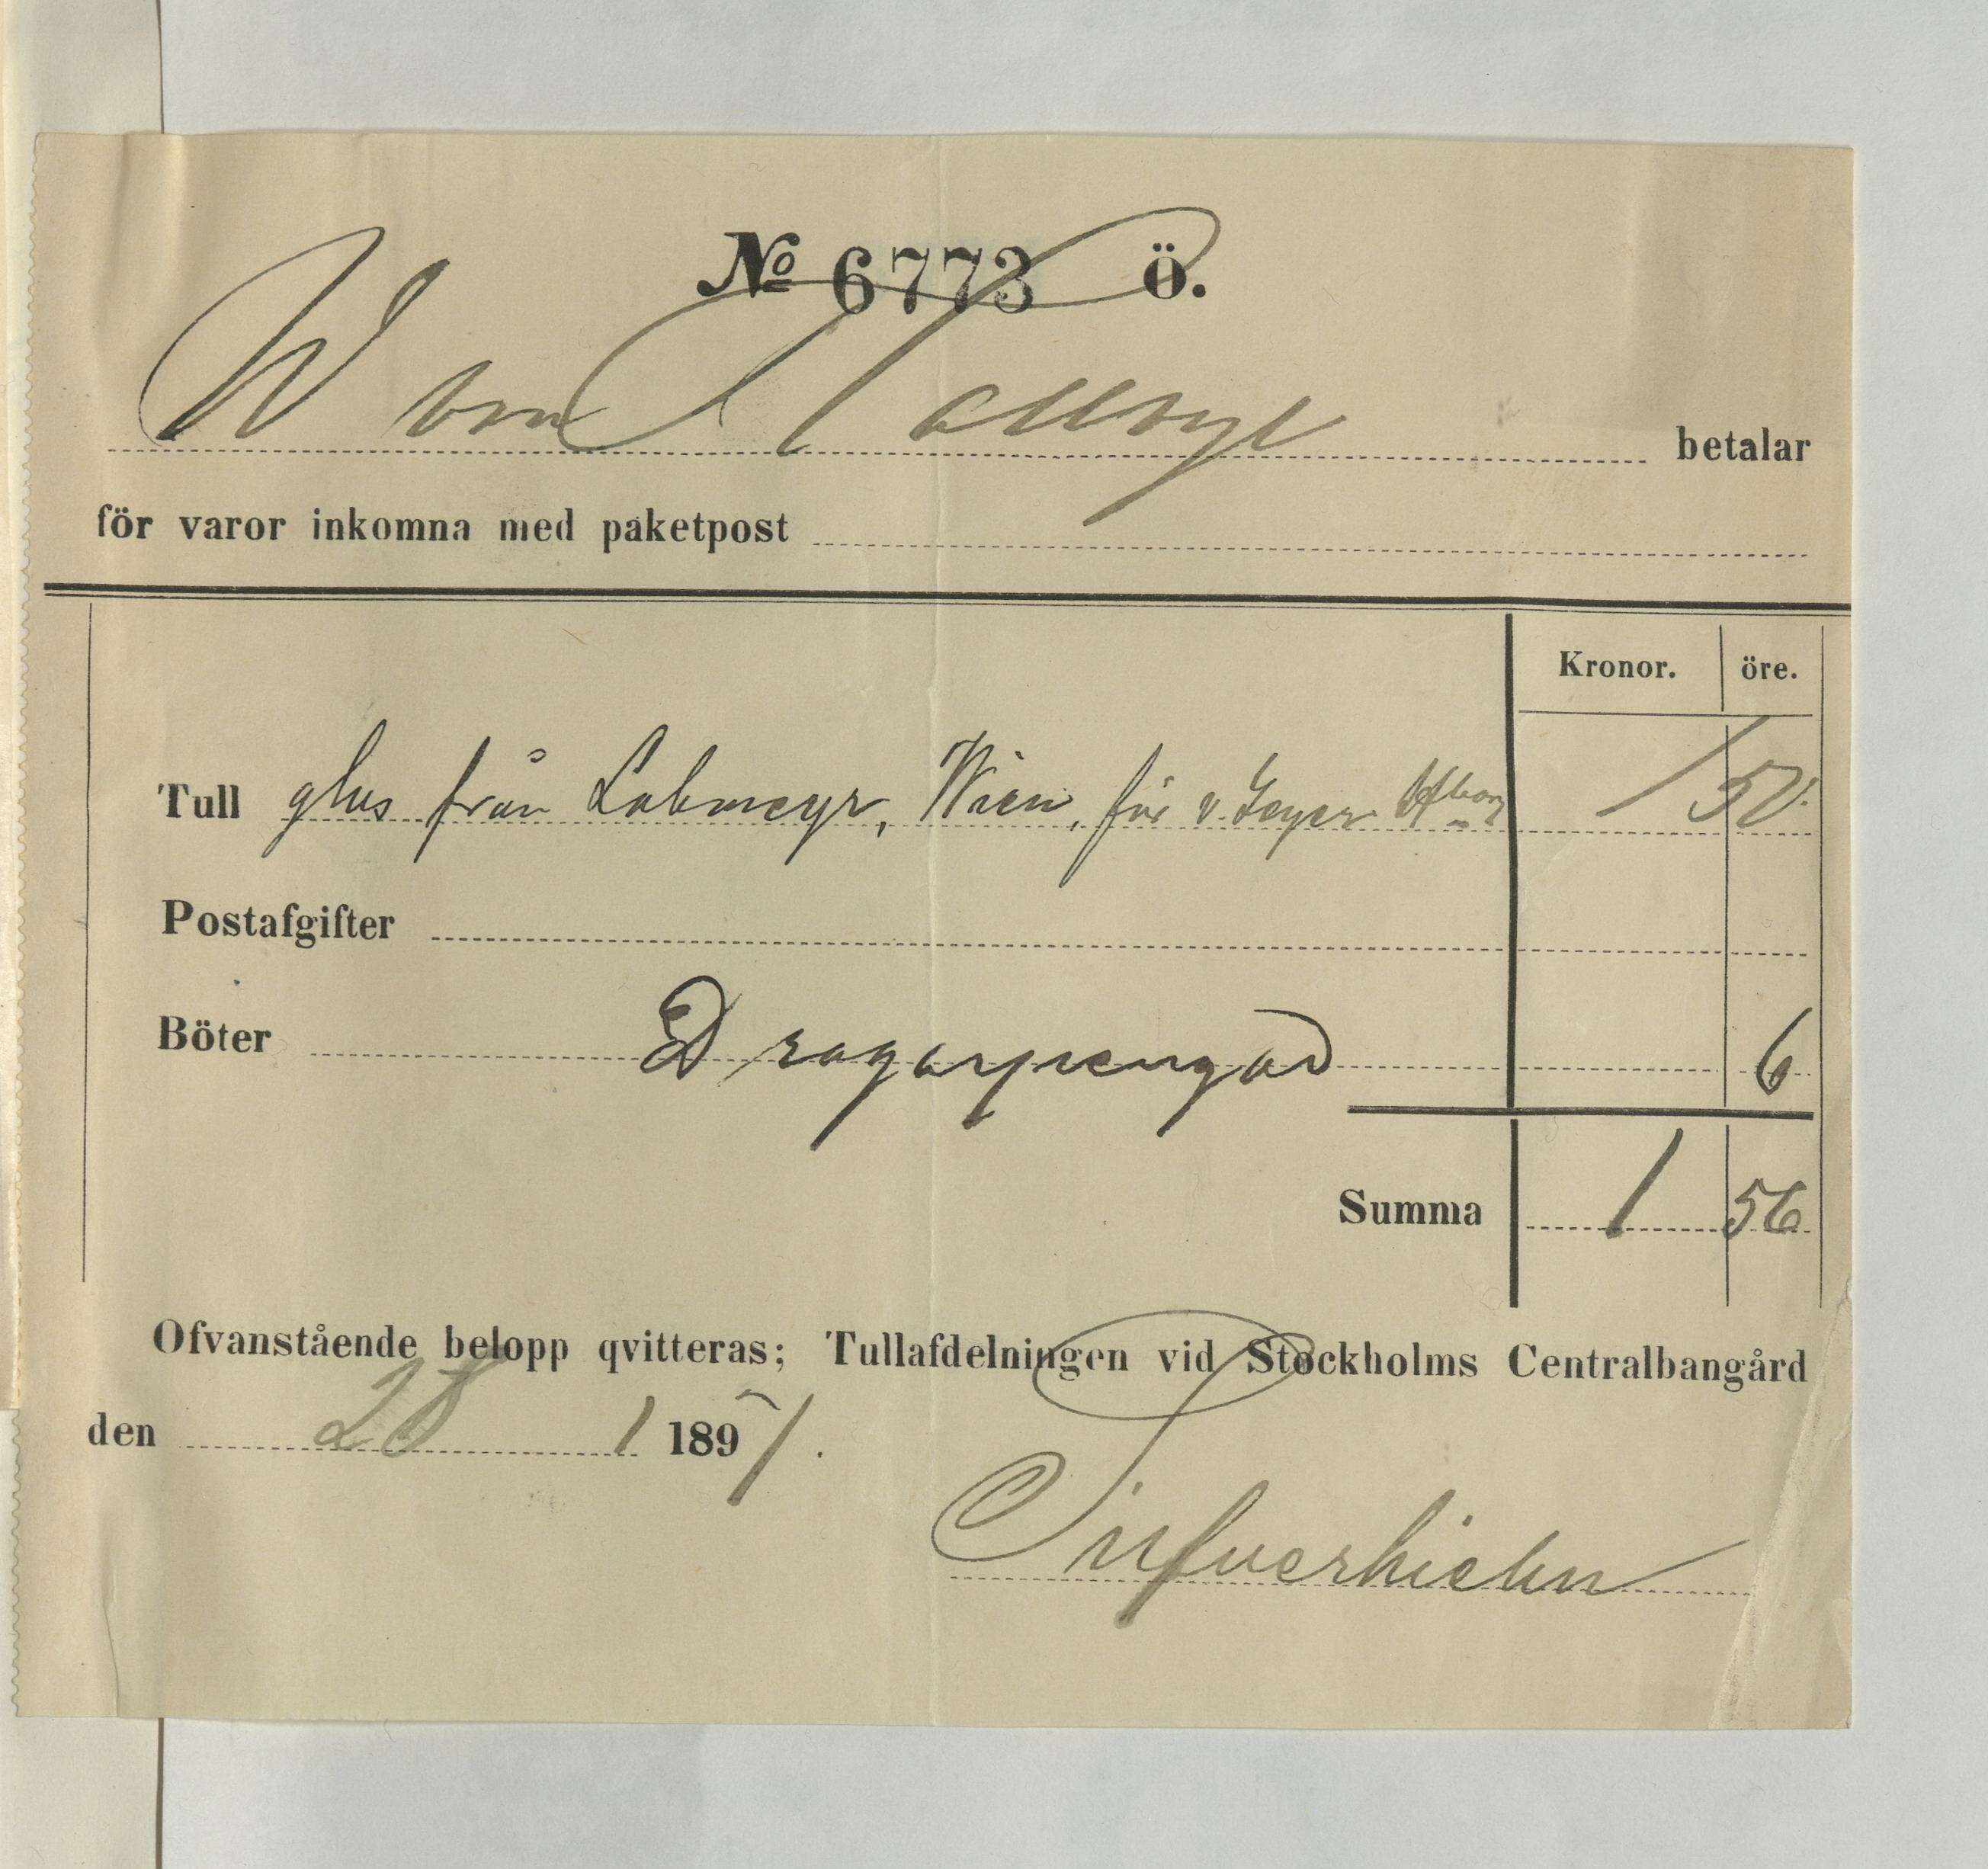 № 6773 ö.
W von Hallwyl betalar
för varor inkomna med paketpost
Kronor. öre.
Tull glas från Lobmeyr, Wien, för v. Geyer 1 50.
Postafgifter
Böter Dragarpengar 6
Summa 1 56
Ofvanstående belopp qvitteras; Tullafdelningen vid Stockholms Centralbangård
den 28 1 1897.
Silfverhielm